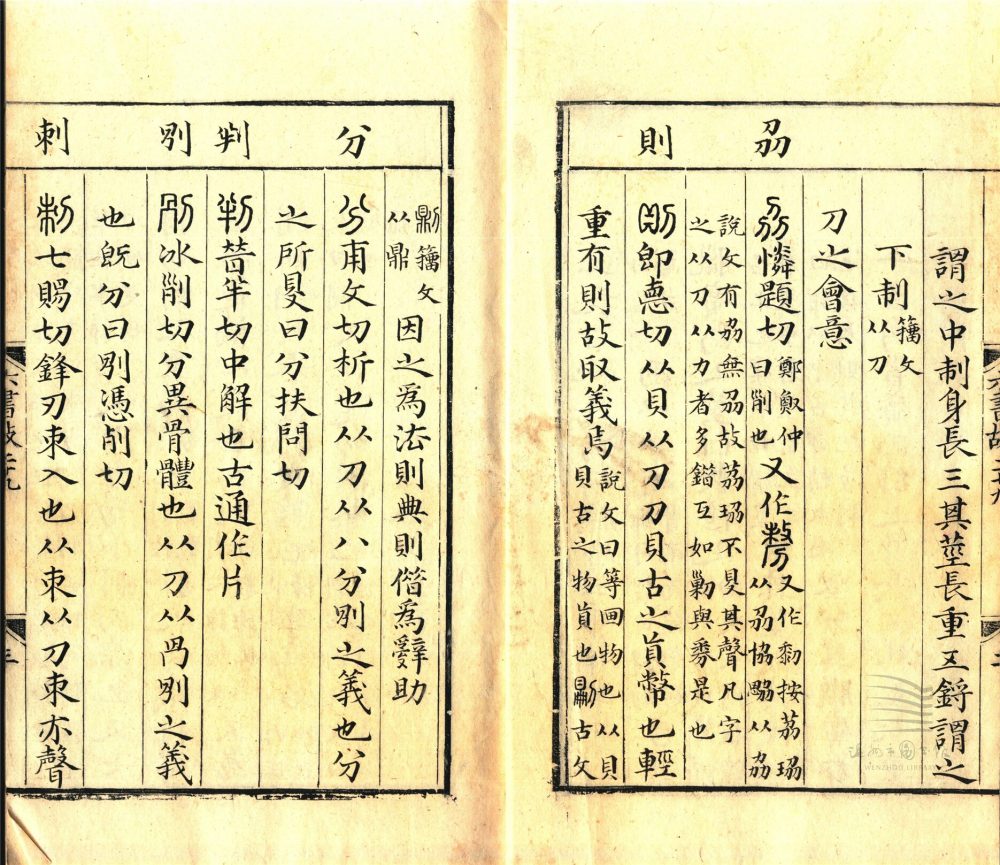 刕
則
謂之中制身長三其莖長重五鋝謂之
下制籒文从刀
刀之會意
憐題切鄭 仲曰削也又作 又作 按荔珕从刕協勰从劦
說文有劦無刕故荔珕不 其聲凡字之从刀从力者多錯互如剿與券是也
即悳切从貝从刀刀貝古之貨幣也輕
重有則故取義焉說文曰等画物也从貝貝古之物貨也 古文
六書故二十九
二
分
判
別
刺
籒文从鼎因之為法則典則借為辭助
甫文切析也从刀从八分別之義也分
之所 曰分扶問切
普半切中解也古通作片
冰削切分異骨體也从刀从冎別之義
也旣分曰別憑 切
七賜切鋒刃朿入也从朿从刀朿亦聲
六書故二十九
三
温州市图书馆
WENZHOU LIBRARY